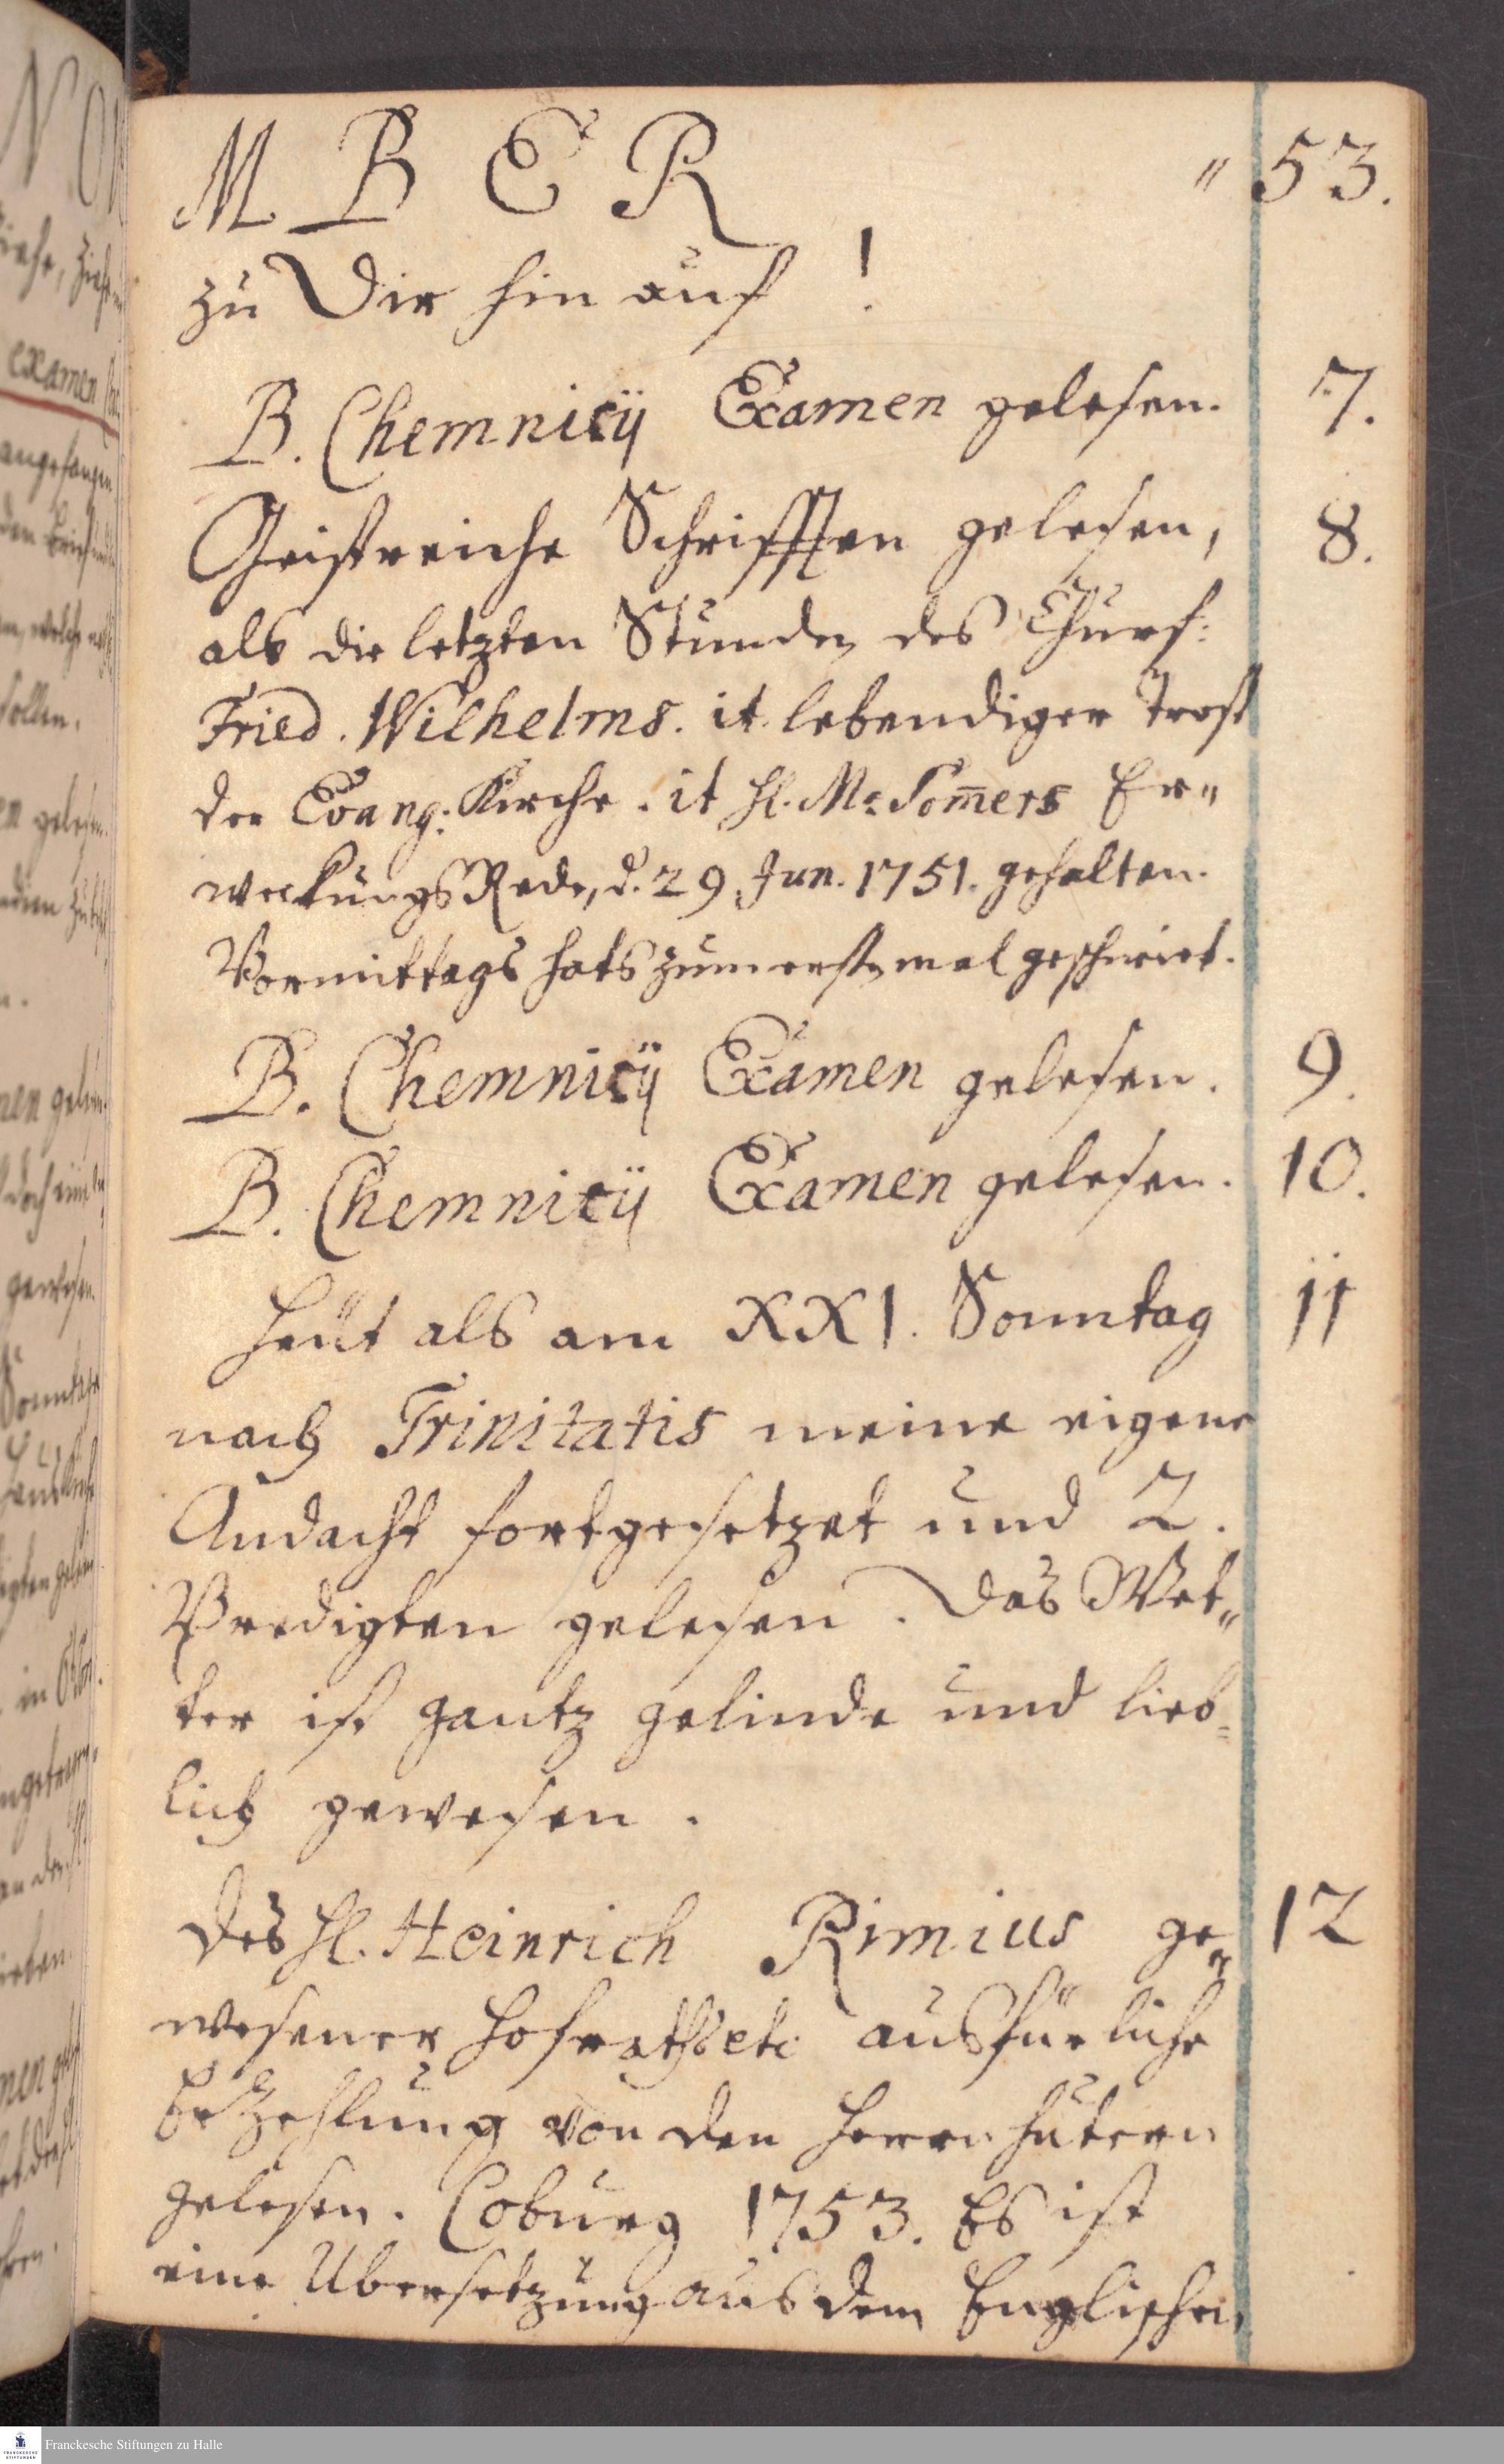 M B E R " 53.
zu Dir hinauf !
B. Chemnicij Examen gelesen. 7.
Geistreiche Schrifften gelesen, 8.
als die letzten Stunden des Churf:
Fried. Wilhelms. it. lebendiger Trost
der Evang: Kirche. it H. M: Somers Er"
weckungsRede, d. 29. Jun. 1751. gehalten.
Vormittags hats zum erstenmal geschneiet.
B. Chemnicij Examen gelesen. 9.
B. Chemnicij Examen gelesen. 10.
Heüt als am XXI. Sonntag 11
nach Trinitatis meine eigene
Andacht fortgesetzet und 2.
Predigten gelesen. Das Wet"
ter ist gantz gelinde und lieb=
lich gewesen.
Des H. Heinrich Rimius ge= 12
wesener Hofraths etc ausfürliche
Erzehlung von den Herrnhütern
gelesen. Coburg 1753. Es ist
eine Ubersetzung aus dem Englischen
Franckesche Stiftungen zu Halle